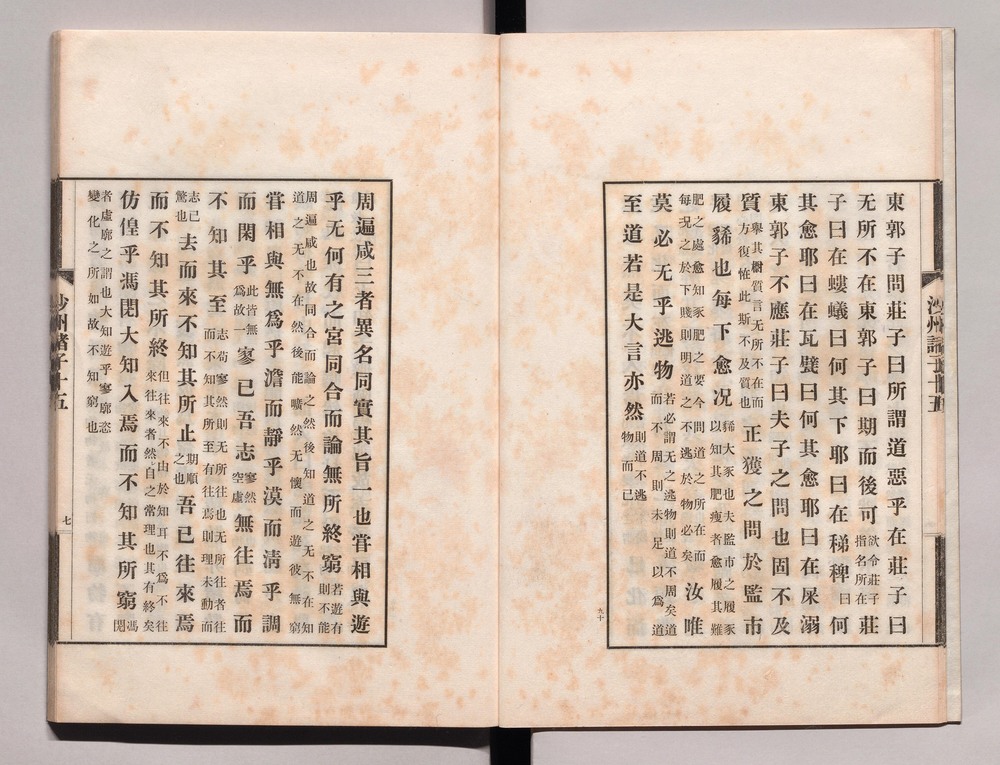 東郭子問莊子曰所謂道惡乎在莊子曰
无所不在東郭子曰期而後可欲令莊子指名所在莊
子曰在螻蟻曰何其下耶曰在稊稗曰何
其愈耶曰在瓦甓曰何其愈耶曰在屎溺
東郭子不應莊子曰夫子之問也固不及
質舉其樹質言无所不在而方復恠此斯不及質也正獲之問於監市
履豨也每下愈况豨大豕也夫監市之履豕以知其肥瘦者愈履其難
肥之處愈知豕肥之要今問道之所在而每况之於下賤則明道之不逃於物必矣汝唯
莫必无乎逃物若必謂无之逃物則道不周矣道而不周則未足以為道
至道若是大言亦然則道不逃物而已
九十
周遍咸三者異名同實其旨一也甞相與遊
乎无何有之宮同合而論無所終窮若遊有則不能
周遍咸也故同合而論之然後知道之无不在知道之无不在然後能曠然无懷而遊彼無窮
甞相與無爲乎澹而靜乎漠而清乎調
而閑乎此皆無爲故一寥已吾志寥然空虛無往焉而
不知其至志苟寥然則无所往也无所往者往而不知其所至有往焉則理未動而
志已驚也去而來不知其所止期順之也吾已往來焉
而不知其所終但往來不由於知耳不為不往來往來者然自之常理也其有終矣
仿偟乎馮閎大知入焉而不知其所窮馮閎
者虛廓之謂也大知遊乎寥廓恣變化之所如故不知窮也
沙州諸子十五
七